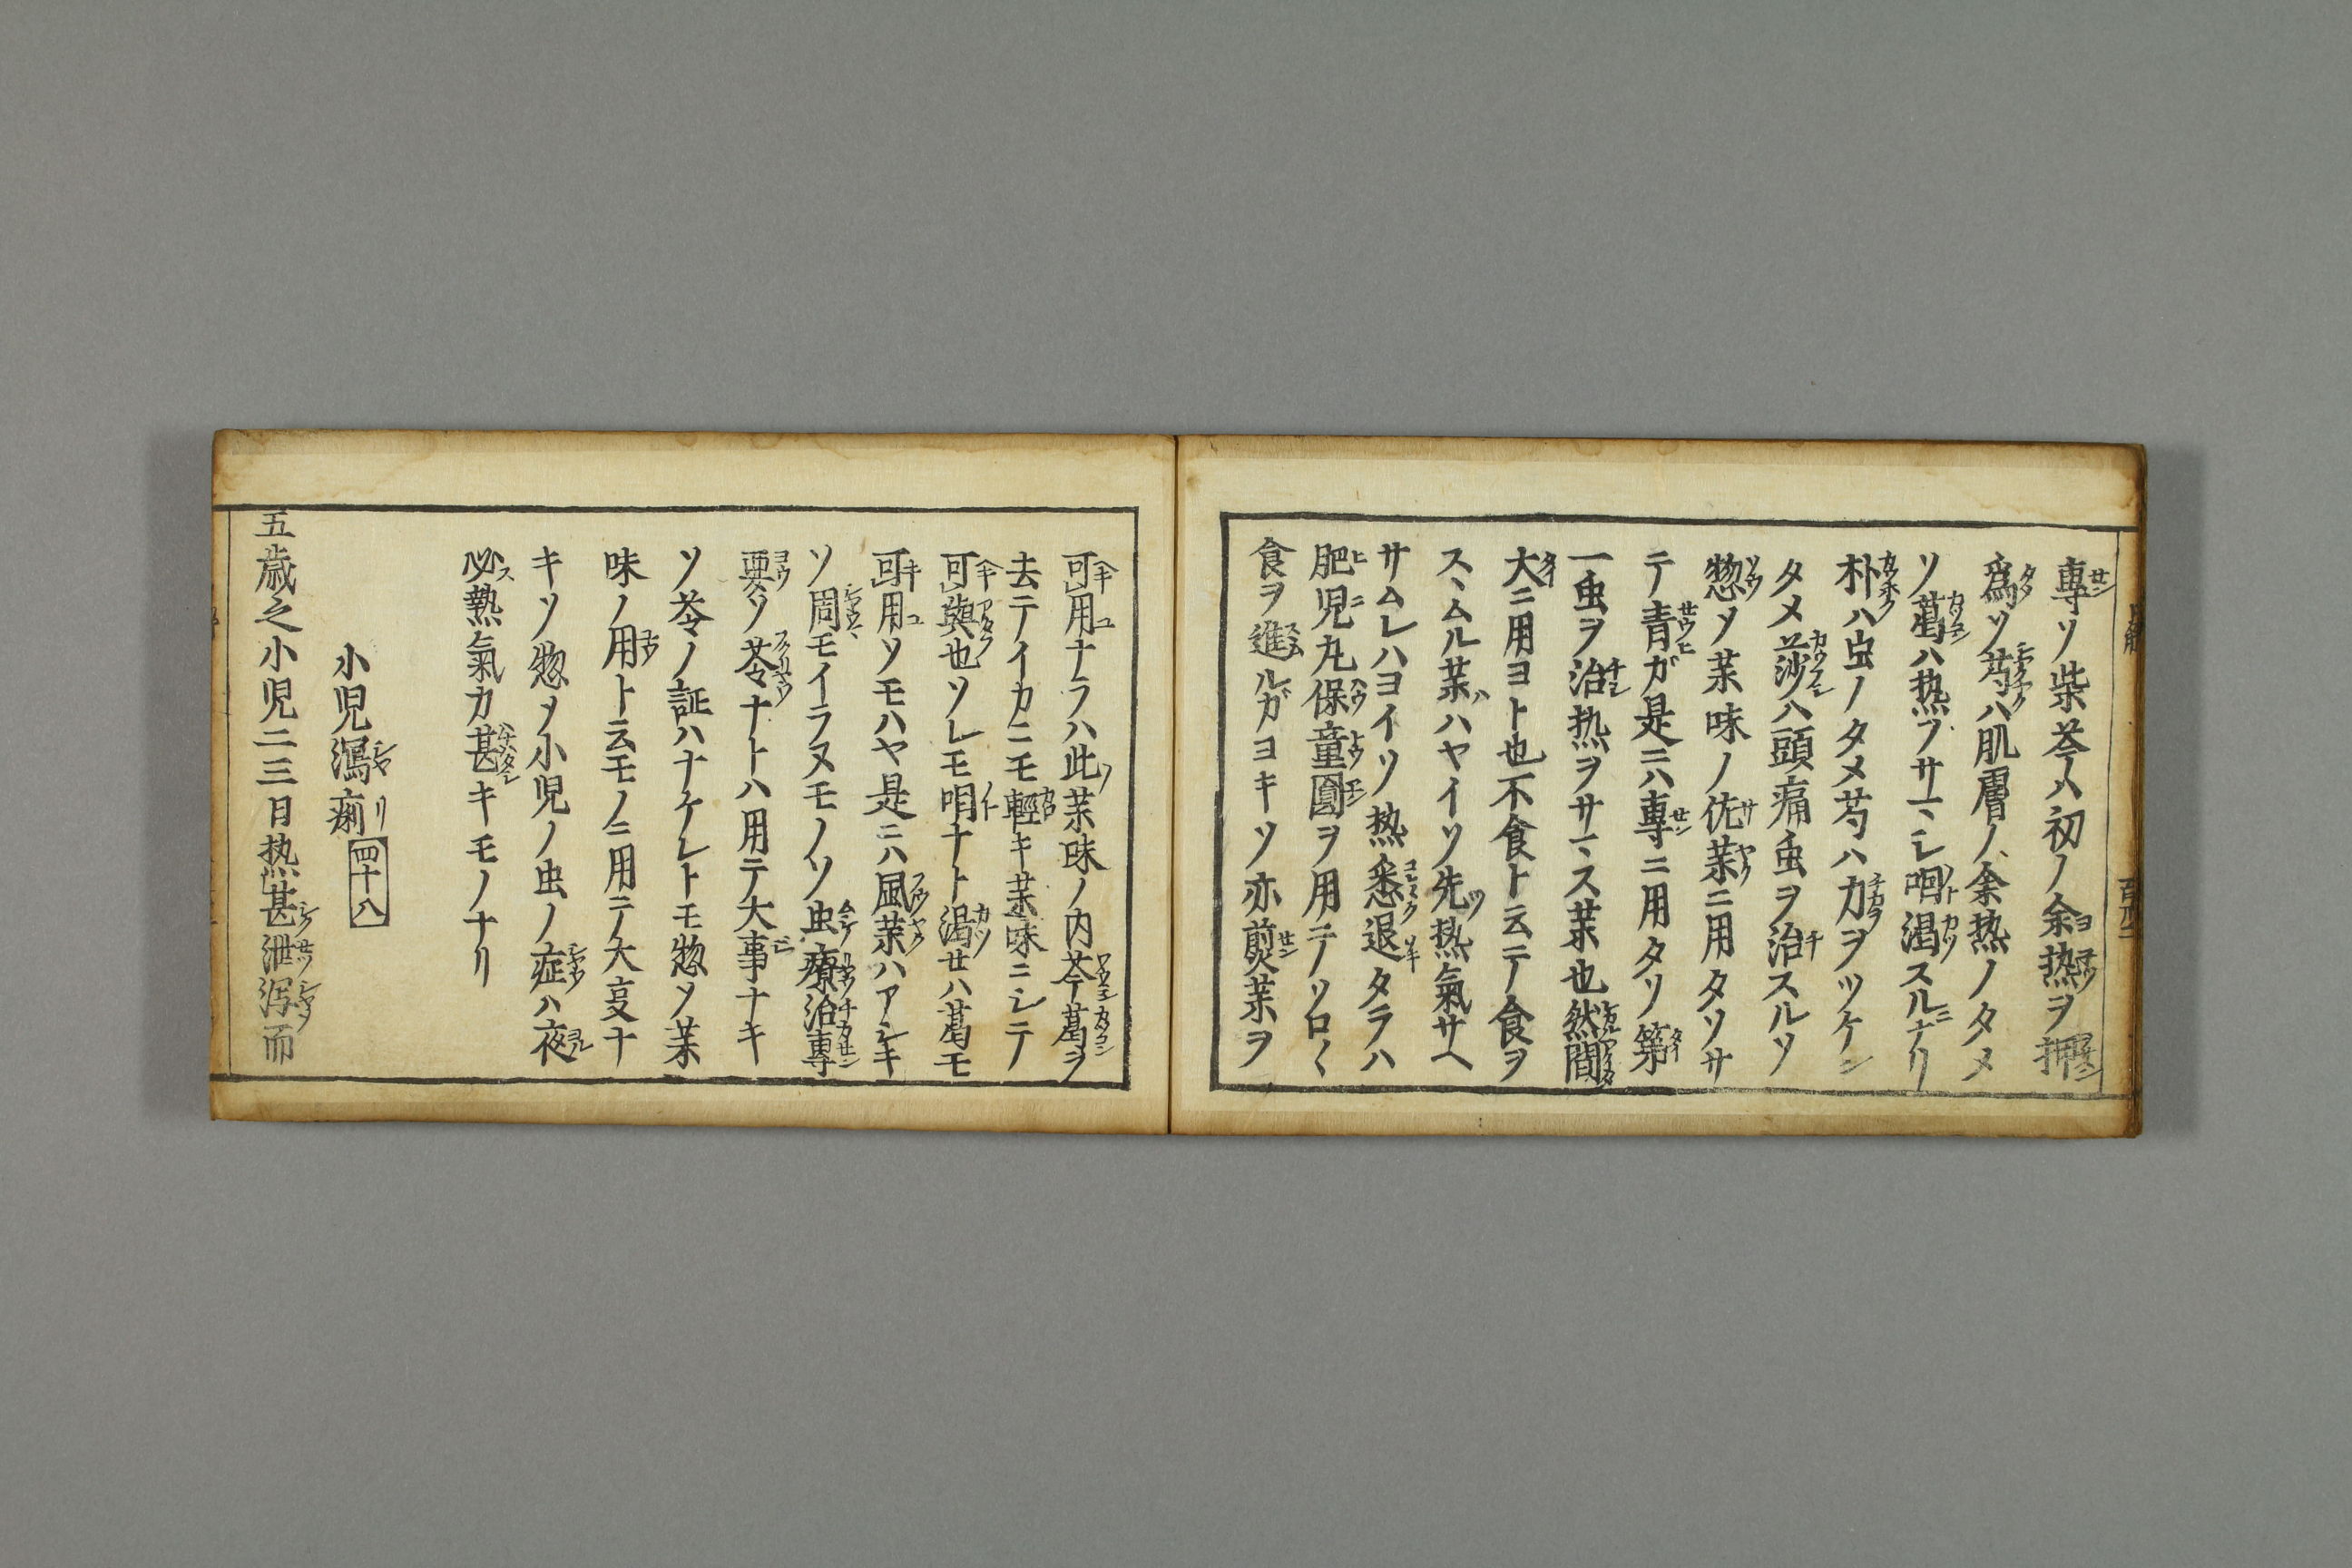 專ソ柴芩ハ初ノ余热ヲ押
爲ソ芍ハ肌膚ノ余热ノタメ
ソ葛ハ热ヲサマシ咽渇スルナリ
朴ハ虫ノタメ芍ハ力ヲツケン
タメ莎ハ頭痛虫ヲ治スルソ
惣ソ茉味ノ佐茉ニ用タソサ
テ青ガ是ニハ專ニ用タソ第
一虫ヲ治热ヲサマス茉也然間
大ニ用ヨト也不食ト云テ食ヲ
スヽムル茉ハハヤイソ先热氣サヘ
サムレハヨイソ热悉退タラハ
肥児丸保童圓ヲ用テソロ〱
食ヲ進ルガヨキソ亦煎茉ヲ
可用ナラハ此茉味ノ内芩葛ヲ
去テイカニモ輕キ茉味ニシテ
可與也ソレモ咽ナト渇せハ葛モ
可用ソモハヤ是ニハ風茉ハアシキ
ソ周モイラヌモノソ虫療治專
要ソ苓ナトハ用テ大事ナキ
ソ苓ノ証ハナケレトモ惣ソ茉
味ノ用ト云モノニ用テ大叓ナ
キソ惣ソ小児ノ虫ノ症ハ夜
必熱氣カ甚キモノナリ
小児瀉痢 四十八
五歳之小児二三日热甚泄瀉而